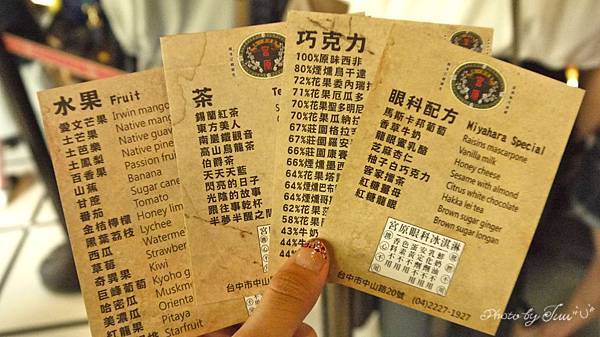 水果 Fruit
愛文芒果 Irwin mango
土芒果 Native mang
土芭樂 Native guav
土鳳梨 Native pinea
百香果 Passion fruit
山蕉 Banana
甘蔗 Sugar cane
番茄 Tomato
金桔檸檬 Honey lim
黑葉荔枝 Lychee
西瓜 Waterme
草莓 Strawber
奇異果 Kiwi
巨峰葡萄 Kyoho g
哈密瓜 Muskme
美濃瓜 Orienta
紅龍果 Pitaya
Starfruit
茶 Te
錫蘭紅茶
東方美人
南巖鐵觀音
高山烏龍茶
伯爵茶
天天天藍
閃亮的日子
光陰的故事
跟往事乾杯
半夢半醒之間
巧克力
100%原味西非
80%煙燻烏干達
72%花果委內瑞拉
71%花果厄瓜多
70%花果聖多明尼
70%花果瓜納拉
67%莊園格拉
67%莊園羅安
66%莊園康賽
66%煙燻墨西
64%花果塔
64%煙燻巴布
64%煙燻哥
62%花果莎
58%花果
43%牛奶
44%
44%
宮原
眼科配方 Miyahara Special
馬斯卡邦葡萄 Raisins mascarpone
香草牛奶 Vanilla milk
龍眼蜜乳酪 Honey cheese
芝麻杏仁 Sesame with almond
柚子白巧克力 Citrus white chocolate
客家擂茶 Hakka lei tea
紅糖薑母 Brown sugar ginger
紅糖龍眼 Brown sugar longan
宮原眼科冰淇淋
鮮奶油不用
乳化劑不用
安定劑不用
蛋黃不用
色素不用
香料不用
台中市中山路20號 (04)2227-1927
台中市中山
Photo by Juu